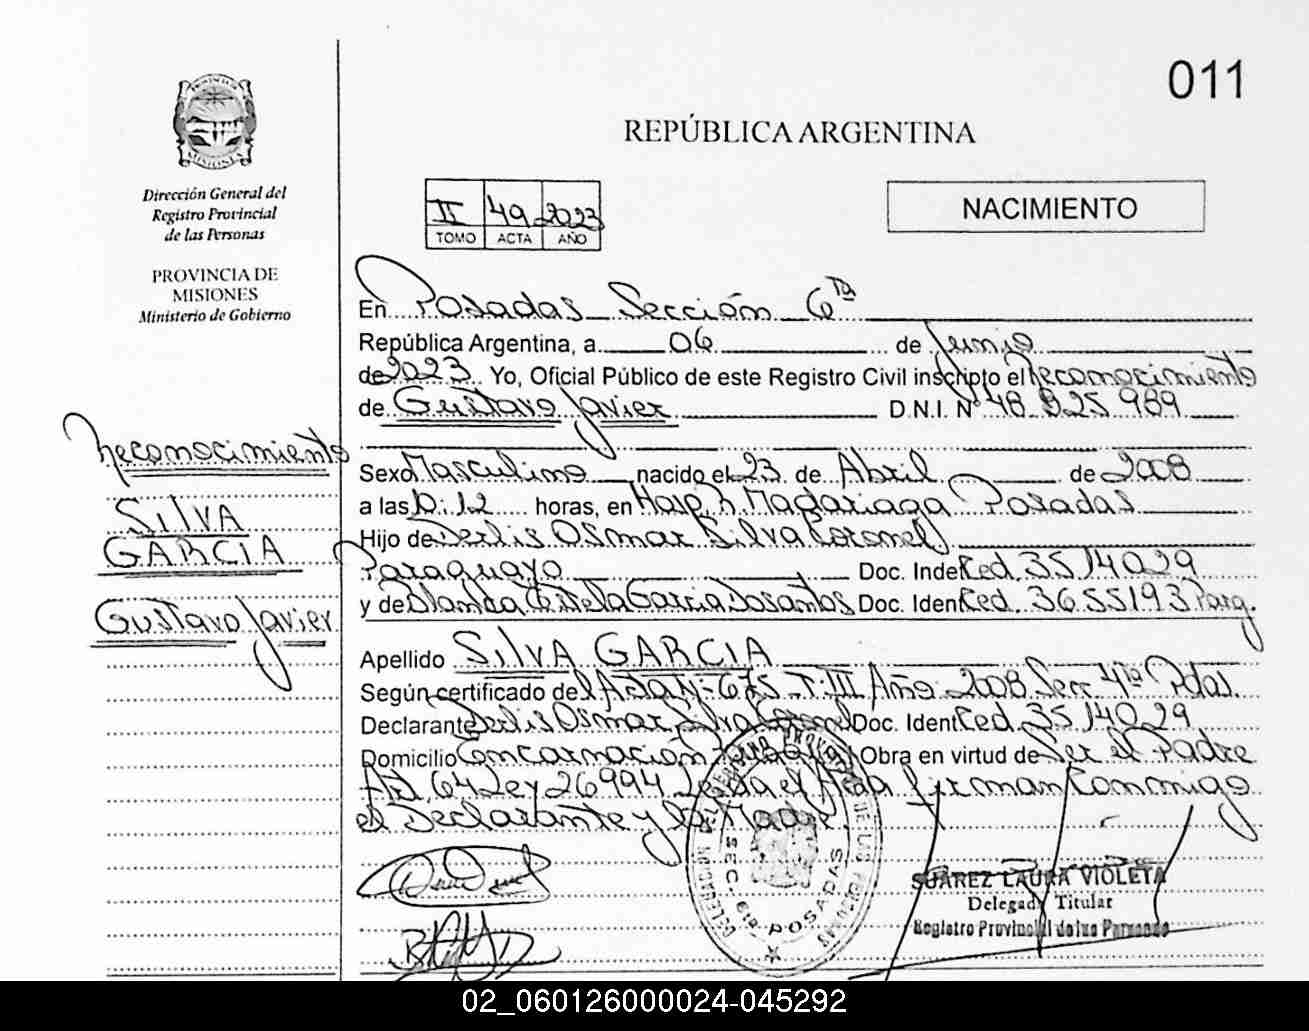 011
PROVINCIA
MISIONES
REPÚBLICA ARGENTINA
Dirección General del
Registro Provincial
de las Personas
PROVINCIA DE
MISIONES
Ministerio de Gobierno
II 49 2023
TOMO ACTA AÑO
NACIMIENTO
En Posadas Sección 6ta
República Argentina, a 06 de Junio
de 2023 Yo, Oficial Público de este Registro Civil inscripto el Reconocimiento
de Gustavo Javier D.N.I. Nº 48 825 989
Reconocimiento
SILVA
GARCIA
Gustavo Javier
Sexo Masculino nacido el 23 de Abril de 2008
a las 10:12 horas, en Hosp. R. Madariaga Posadas
Hijo de Derlis Osmar Silva Coronel
Paraguayo Doc. Ident Ced. 3514029
y de Blanca Estela Garcia Dosantos Doc. Ident Ced. 3655193 Parg.
Apellido SILVA GARCIA
Según certificado del Acta Nº 675 - T. III Año 2008 Secc 4ta Pdas.
Declarante Derlis Osmar Silva Coronel Doc. Ident Ced. 3514029
Domicilio Encarnación Obra en virtud de Ser el Padre
Art. 64 Ley 26994 Leída el Acta firman Conmigo
el Declarante y la Madre.
SEC. 6ta POSADAS
SUAREZ LAURA VIOLETA
Delegada Titular
Registro Provincial de las Personas
02_060126000024-045292